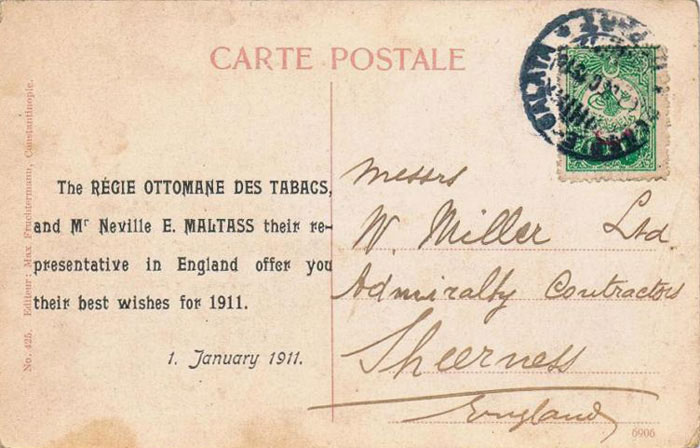 CARTE POSTALE
GALATA
The RÉGIE OTTOMANE DES TABACS,
and Mr Neville E. MALTASS their re-
presentative in England offer you
their best wishes for 1911.
1. January 1911.
Messrs
W. Miller Ltd.
Admiralty Contractors
Sheerness
England
No. 425. Editeur: Max Fruchtermann, Constantinople.
6906